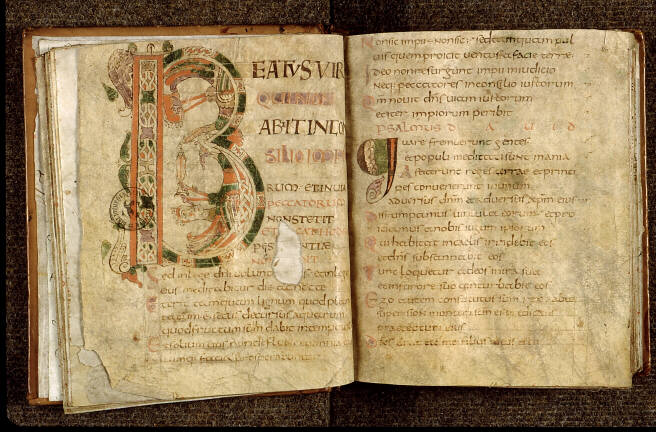 B
EATVS VIR
QUI NON
ABIIT IN CON
SILIO IMPI
RUM ET IN VIA
PECCATORUM
NON STETIT
ET IN CATHED
PESTILENTIAE
NON SEDIT
Sed in lege dni uolun in lege
eius meditabitur die ac nocte
tamquam lignum quod plan
secus decursus aquarum
quod fructum suum dabit in tempore
Et folium eius non defluet omnia
quaecumque faciet prosperabuntur
Non sic impii non sic sed tamquam pul
uis quem proicit uentus a facie terrae
Ideo non resurgunt impii in iudicio
Neque peccatores in consilio iustorum
nouit dns uiam iustorum
et iter impiorum peribit
PSALMUS DAUID
Quare fremuerunt gentes
et populi meditati sunt inania
Asteterunt reges terrae et princi
pes conuenerunt in unum
aduersus dnm et aduersus xpm eius
Dirumpamus uincula eorum et proi
iciamus a nobis iugum ipsorum
Qui habitat in caelis inridebit eos
et dns subsannabit eos
Tunc loquetur ad eos in ira sua
et in furore suo conturbabit eos
Ego autem constitutus sum rex ab eo
super sion montem sanctum eius
praeceptum eius